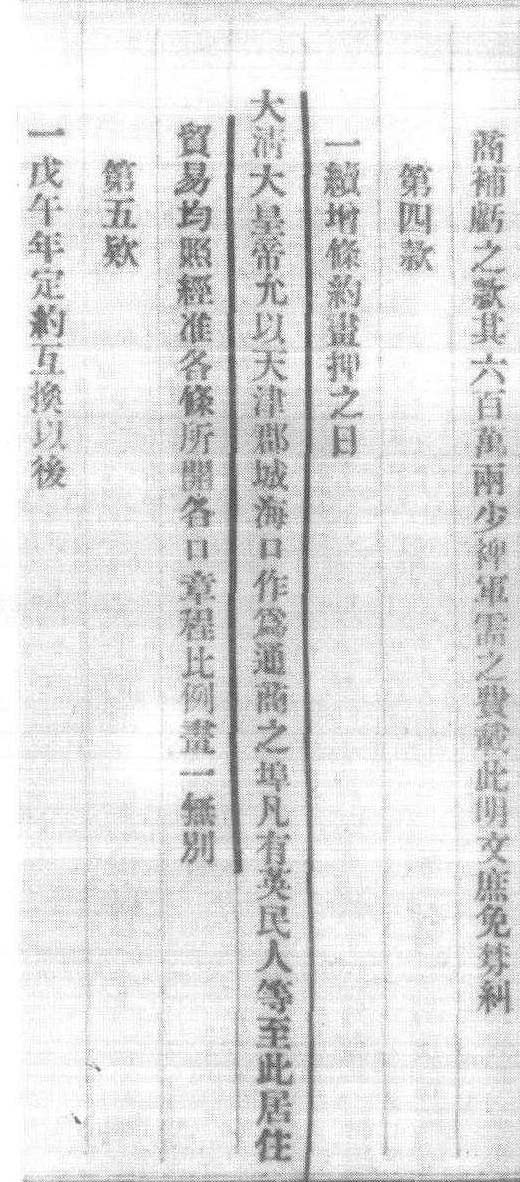 商補虧之款其六百萬兩少裨軍需之費載此明文庶免棼糾
第四款
一續增條約畫押之日
大淸大皇帝允以天津郡城海口作爲通商之埠凡有英民人等至此居住
貿易均照經准各條所開各口章程比例畫一無別
第五款
一戊午年定約互換以後